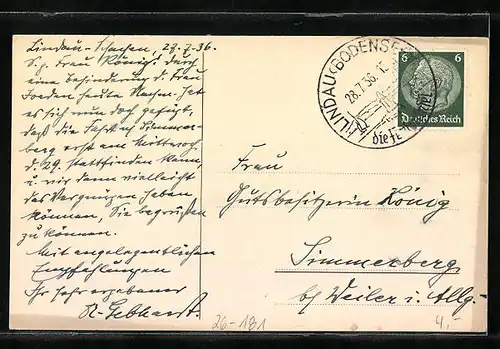 Lindau-Schachen, 27.7.36.
S.g. Frau König! Durch
eine Behinderung d. Frau
heute Nachm. hat
es sich nun doch gefügt,
daß die Fahrt n. Simmer-
berg erst am Mittwoch
d. 29. stattfinden kann,
u. wir dann vielleicht
das Vergnügen haben
können, Sie begrüßen
zu können.
Mit angelegentlichen
Empfehlungen
Ihr sehr ergebener
R. Gebhardt.
LINDAU (BODENSEE)
28.7.36
die
6 6
Deutsches Reich
Frau
Gutsbesitzerin König
Simmerberg
b/ Weiler i. Allg.
26-181
4.-